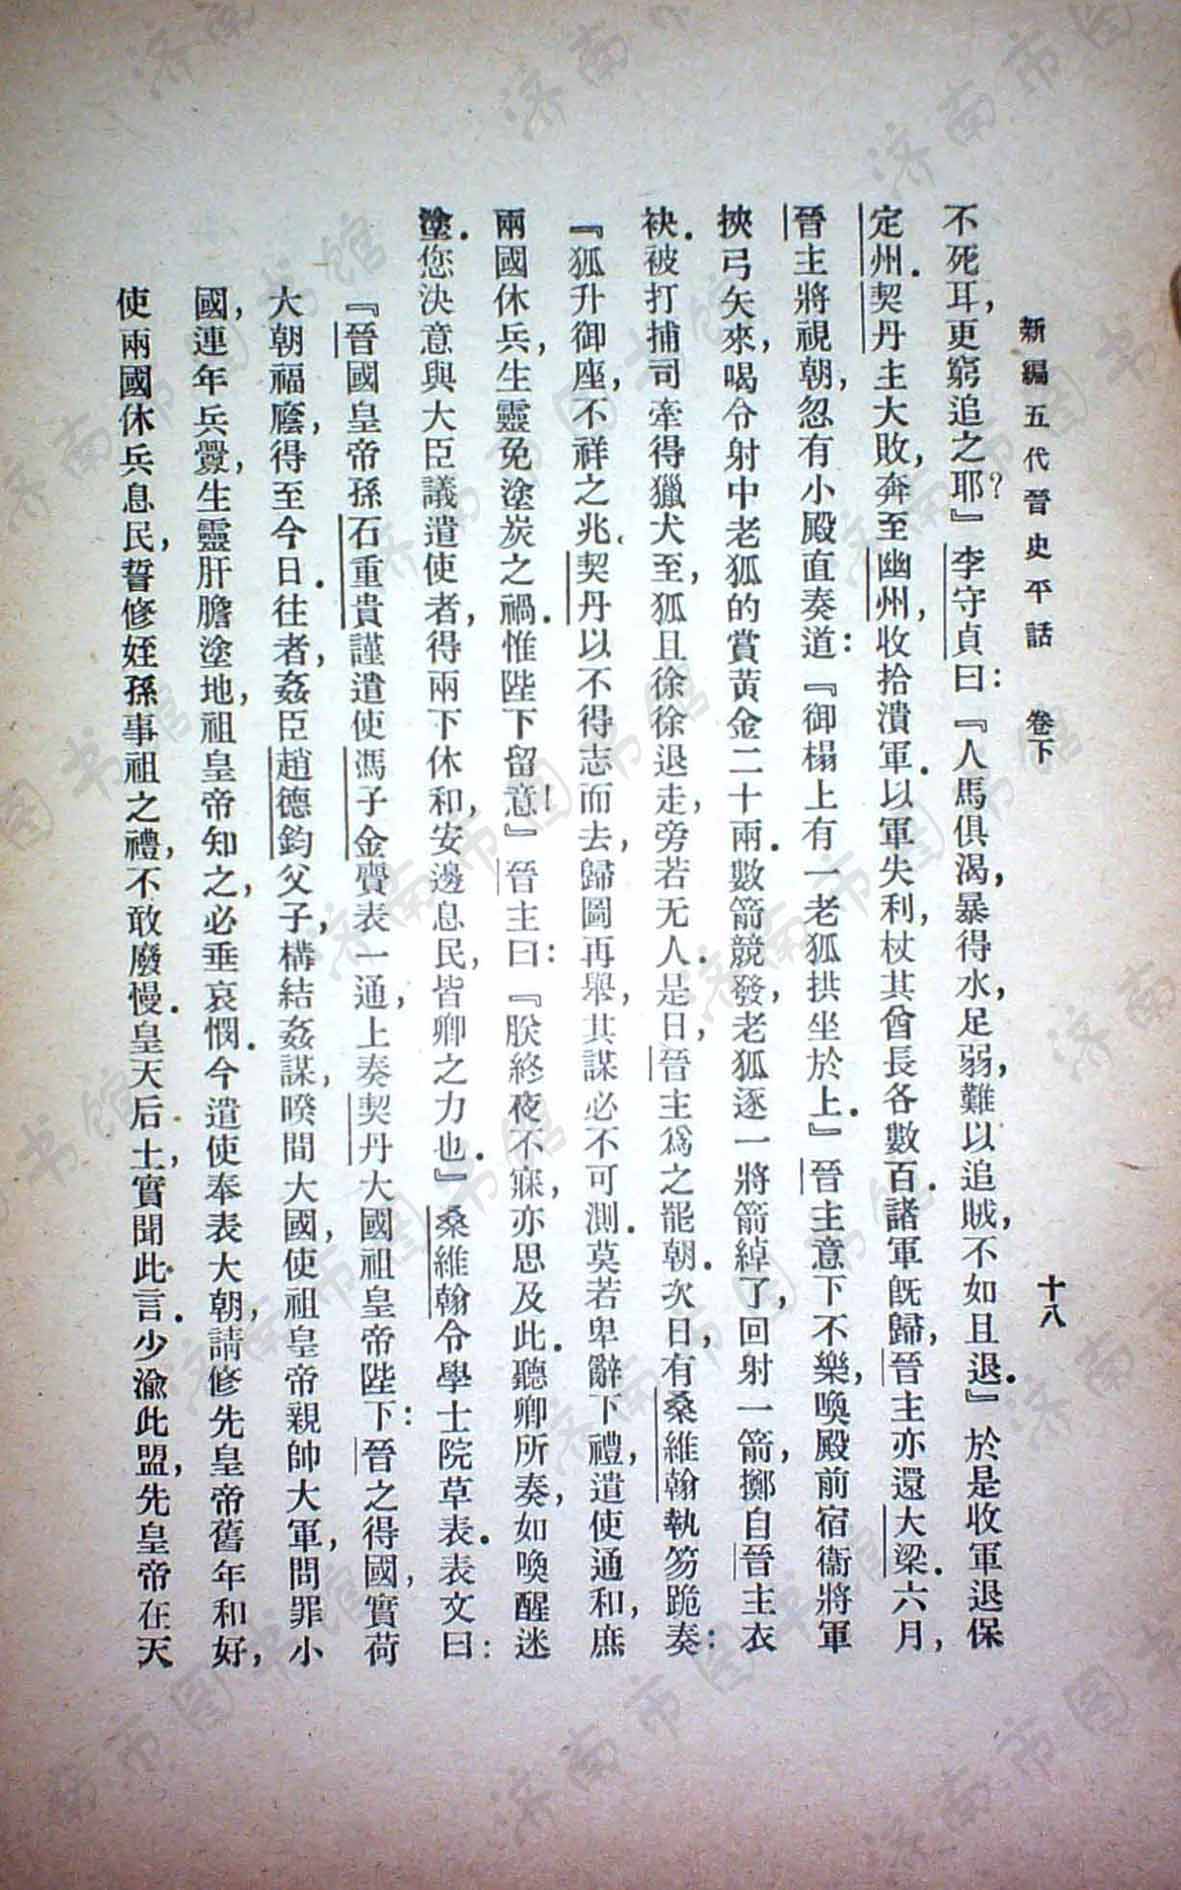 新編五代晉史平話　卷下　十八
不死耳，更窮追之耶？』李守貞曰：『人馬俱渴，暴得水，足弱，難以追賊，不如且退．』於是收軍退保
定州．契丹主大敗，奔至幽州，收拾潰軍．以軍失利，杖其酋長各數百．諸軍既歸，晉主亦還大梁．六月，
晉主將視朝，忽有小殿直奏道：『御榻上有一老狐拱坐於上．』晉主意下不樂，喚殿前宿衞將軍
挾弓矢來，喝令射中老狐的賞黃金二十兩．數箭競發，老狐逐一將箭綽了，回射一箭，擲自晉主衣
袂．被打捕司牽得獵犬至，狐且徐徐退走，旁若无人．是日，晉主爲之罷朝．次日，有桑維翰執笏跪奏：
『狐升御座，不祥之兆．契丹以不得志而去，歸圖再舉，其謀必不可測．莫若卑辭下禮，遣使通和，庶
兩國休兵，生靈免塗炭之禍．惟陛下留意！』晉主曰：『朕終夜不寐，亦思及此．聽卿所奏，如喚醒迷
塗．您決意與大臣議遣使者，得兩下休和，安邊息民，皆卿之力也．』桑維翰令學士院草表．表文曰：
『晉國皇帝孫石重貴謹遣使馮子金賫表一通，上奏契丹大國祖皇帝陛下：晉之得國，實荷
大朝福廕，得至今日．往者，姦臣趙德鈞父子，構結姦謀，暌間大國，使祖皇帝親帥大軍，問罪小
國，連年兵釁，生靈肝膽塗地，祖皇帝知之，必垂哀憫．今遣使奉表大朝，請修先皇帝舊年和好，
使兩國休兵息民，誓修姪孫事祖之禮，不敢廢慢．皇天后土，實聞此言．少渝此盟，先皇帝在天
济南市图书馆